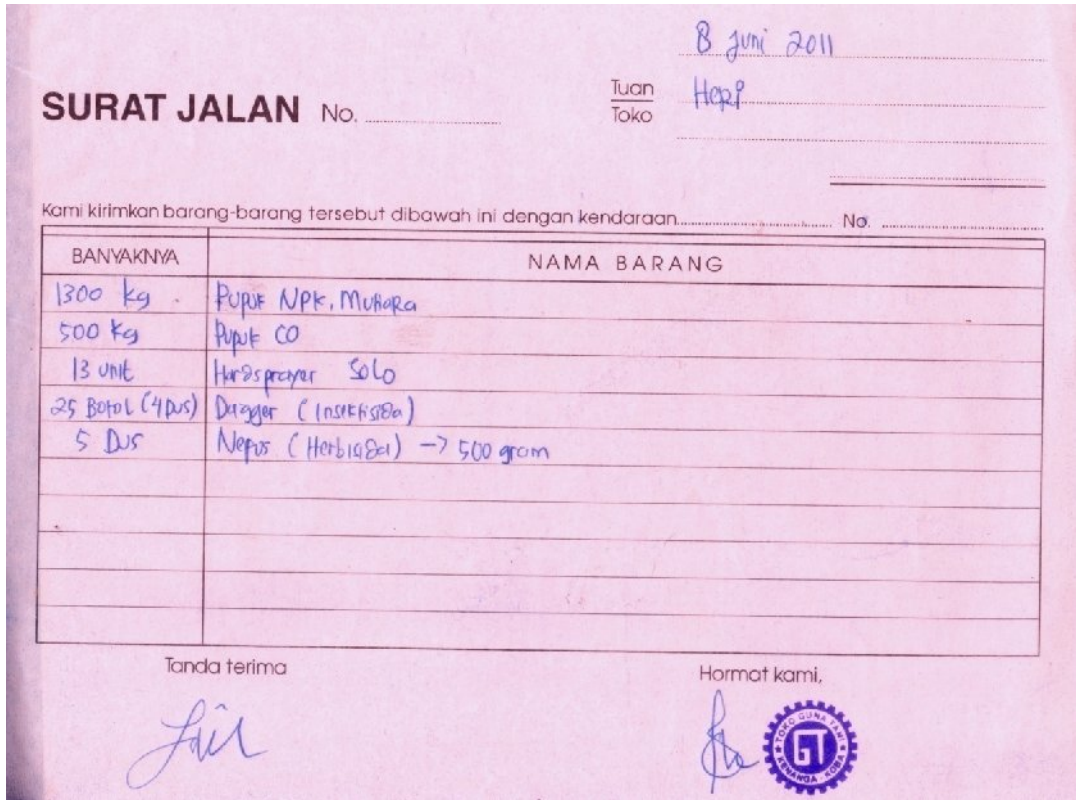 8 Juni 2011
SURAT JALAN No.
Tuan
Toko
Heri
Kami kirimkan barang-barang tersebut dibawah ini dengan kendaraan No.
BANYAKNYA NAMA BARANG
1300 kg Pupuk NPK. Mutiara
500 kg Pupuk CO
13 unit Handsprayer SOLO
25 Botol (4 Dus) Dagger (Insektisida)
5 Dus (Herbisida) -> 500 gram
Tanda terima Hormat kami,
TOKO GUNA TANI
GT
KENANGA KOBA